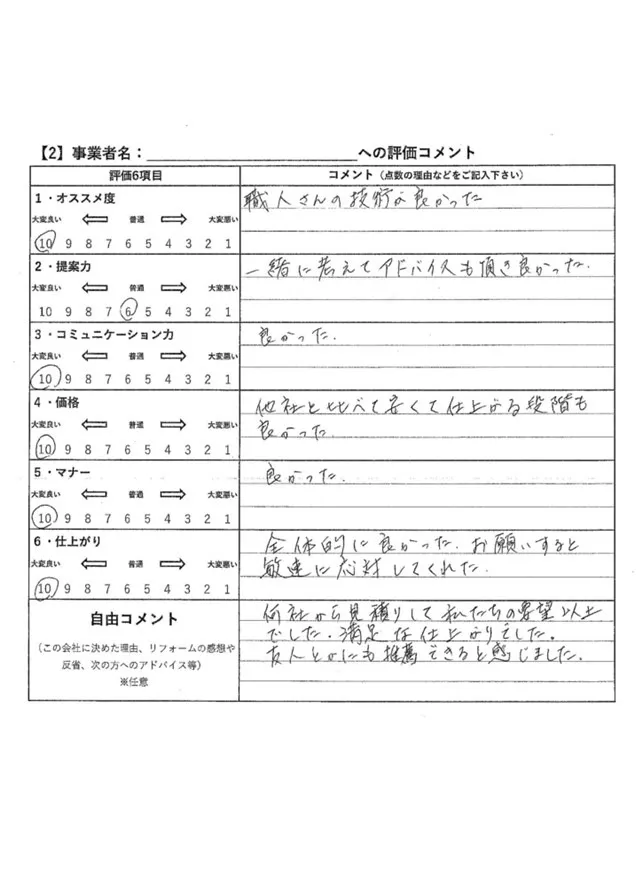 【2】事業者名：＿＿＿＿＿＿＿＿＿＿＿＿への評価コメント
評価6項目 コメント（点数の理由などをご記入下さい）
1・オススメ度 職人さんの技術が良かった
大変良い ⇐ 普通 ⇒ 大変悪い
10 9 8 7 6 5 4 3 2 1
2・提案力 一緒に考えてアドバイスも頂き良かった.
大変良い ⇐ 普通 ⇒ 大変悪い
10 9 8 7 6 5 4 3 2 1
3・コミュニケーション力 良かった.
大変良い ⇐ 普通 ⇒ 大変悪い
10 9 8 7 6 5 4 3 2 1
4・価格 他社と比べて安くて仕上がる段階も
大変良い ⇐ 普通 ⇒ 大変悪い 良かった.
10 9 8 7 6 5 4 3 2 1
5・マナー 良かった.
大変良い ⇐ 普通 ⇒ 大変悪い
10 9 8 7 6 5 4 3 2 1
6・仕上がり 全体的に良かった. お願いすると
大変良い ⇐ 普通 ⇒ 大変悪い 敏速に応対してくれた.
10 9 8 7 6 5 4 3 2 1
自由コメント
（この会社に決めた理由、リフォームの感想や
反省、次の方へのアドバイス等）
※任意
何社から見積りして私たちの要望以上
でした. 満足な仕上がりでした。
友人とかにも推薦できると感じました.